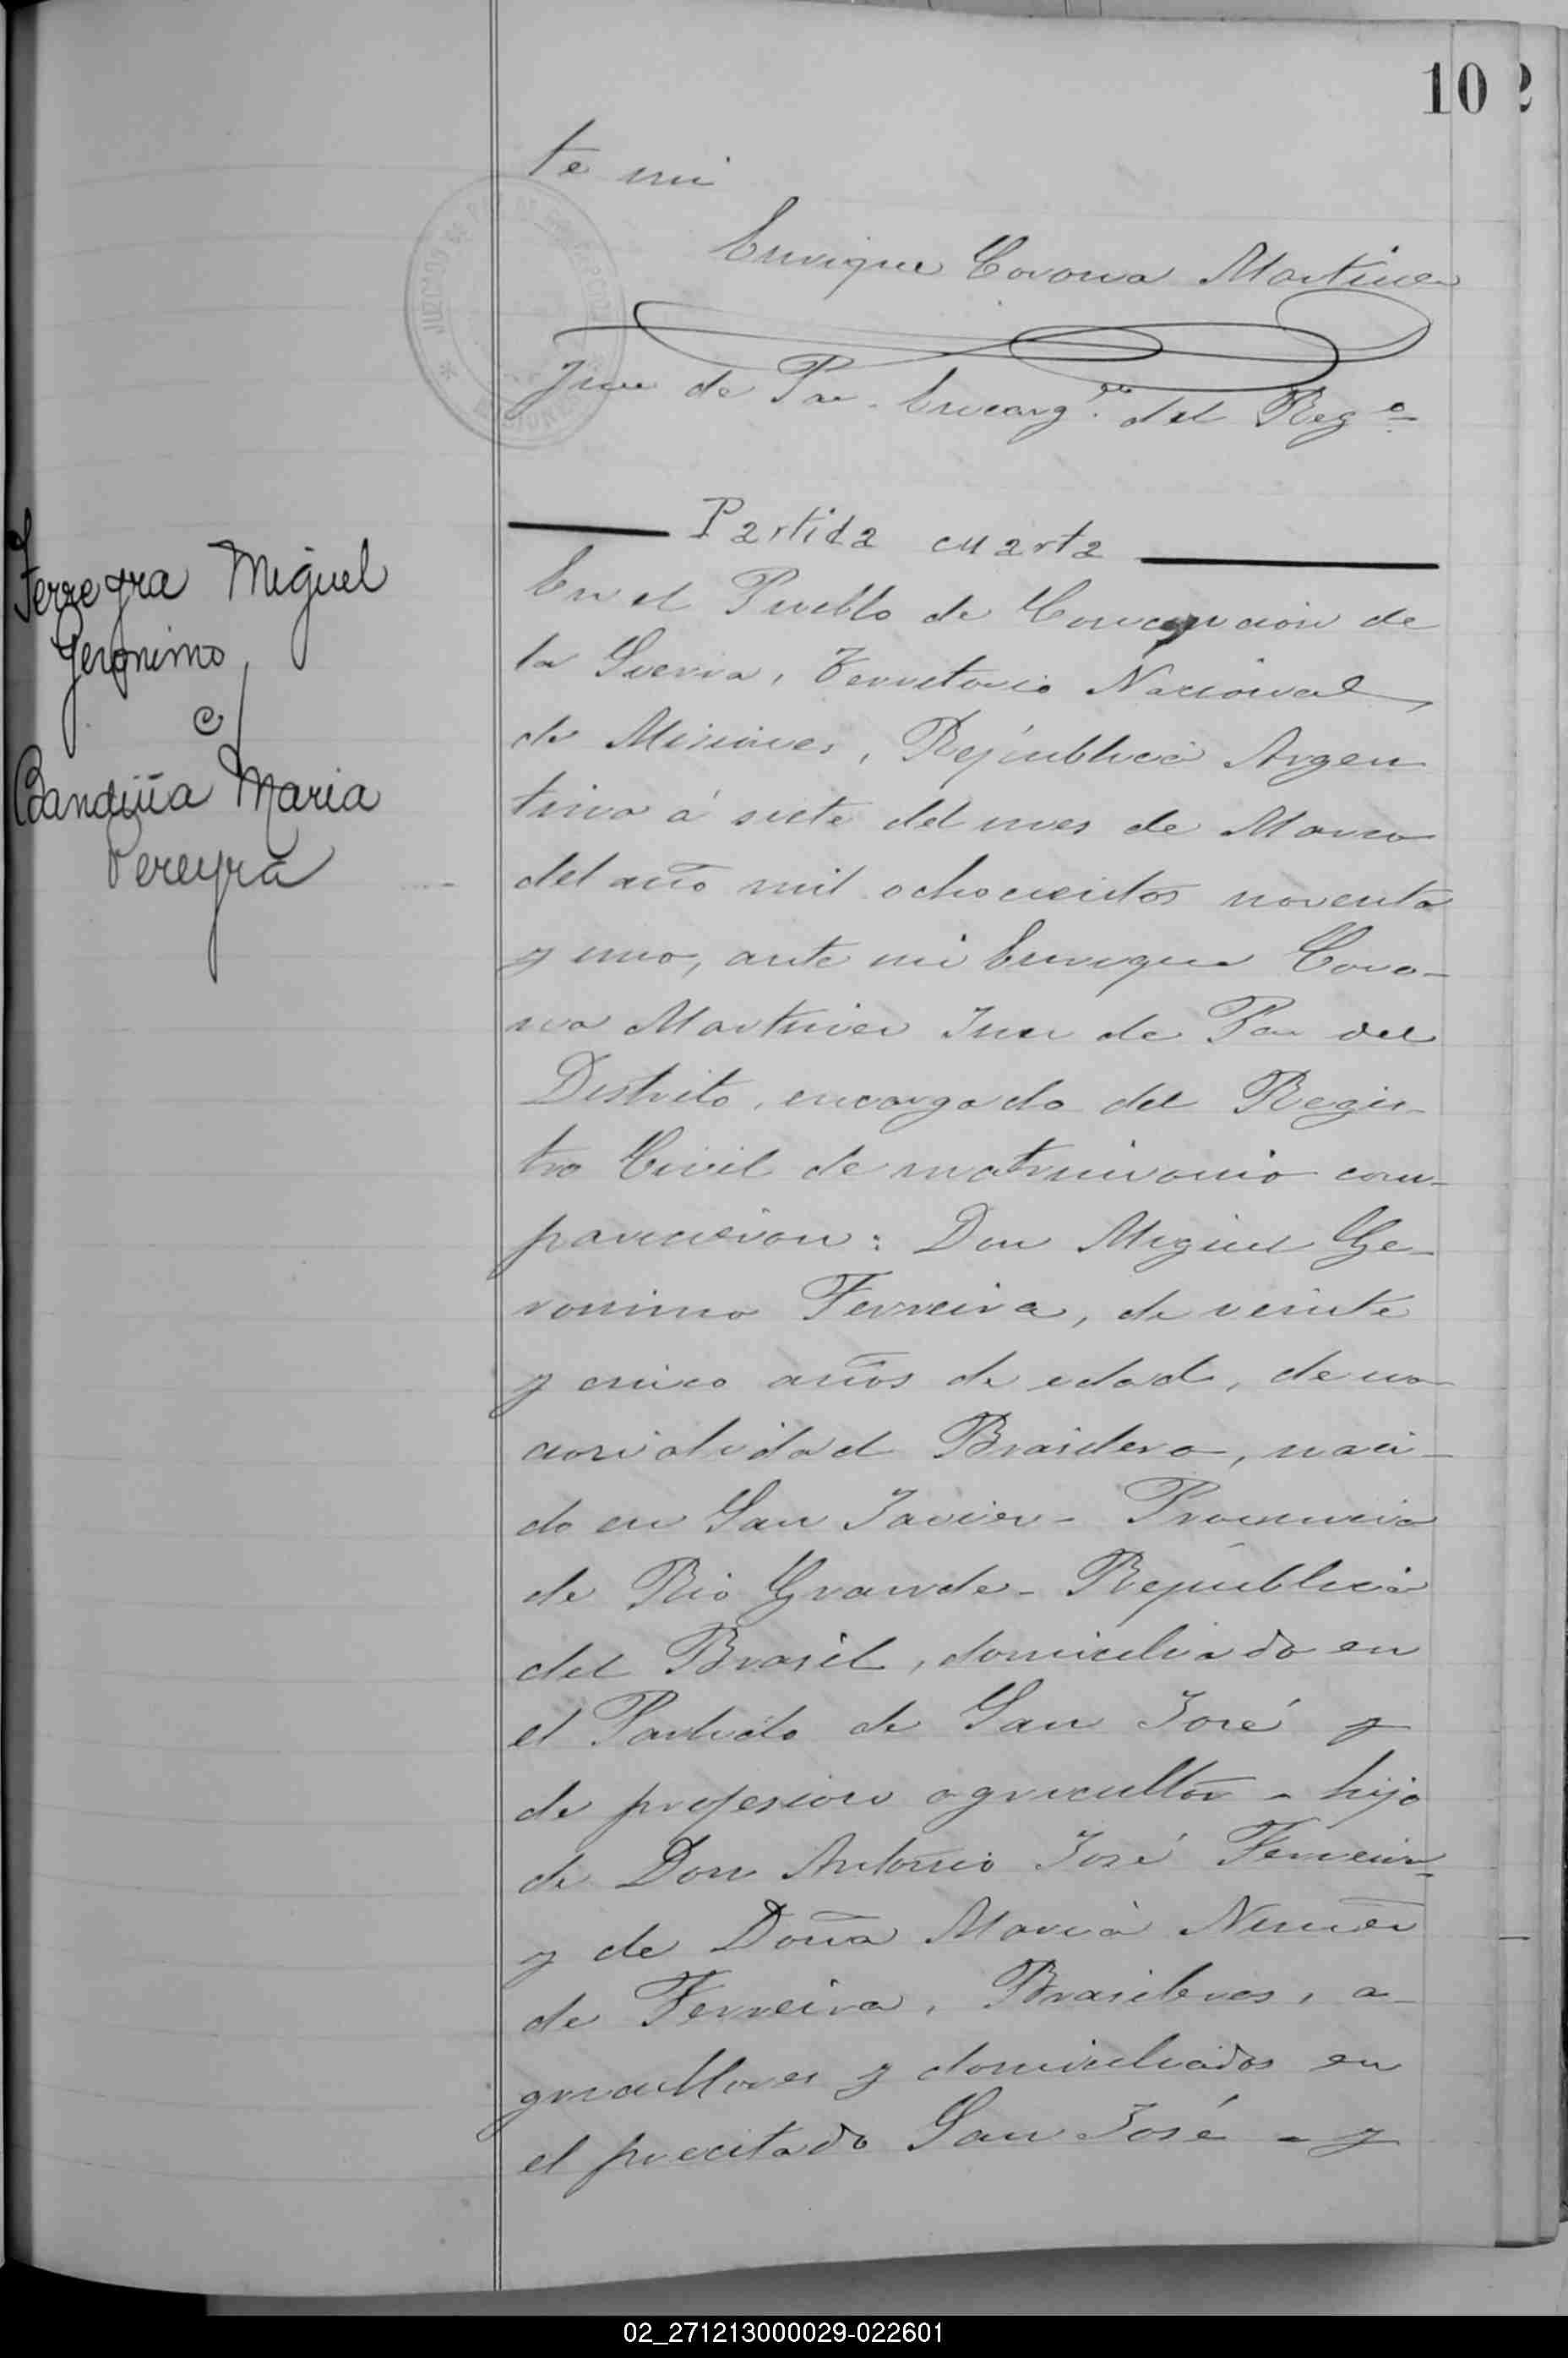 10
te mi
Enrique Corona Martinez
Juez de Paz. Encarg.do del Rego
Partida cuarta
En el Pueblo de Concepcion de
la Sierra, Territorio Nacional
de Misiones, República Argen
tina á siete del mes de Marzo
del año mil ochocientos noventa
y uno, ante mi Enrique Coro-
na Martinez Juez de Paz del
Distrito, encargado del Regis-
tro Civil de matrimonio com-
parecieron: Don Miguel Ge-
ronimo Ferreira, de veinte
y cinco años de edad, de na
cionalidad Brasilera, naci-
do en San Javier - Provincia
de Rio Grande - República
del Brasil, domiciliado en
el Partido de San José y
de profesion agricultor - hijo
de Don Antonio José Ferreira
y de Doña Maria Nuñez
de Ferreira, Brasileros, a-
gricultores y domiciliados en
el precitado San José - y
Ferreyra Miguel
Geronimo
c/
Bandiña Maria
Pereyra
JUZGADO DE PAZ DE
02_271213000029-022601